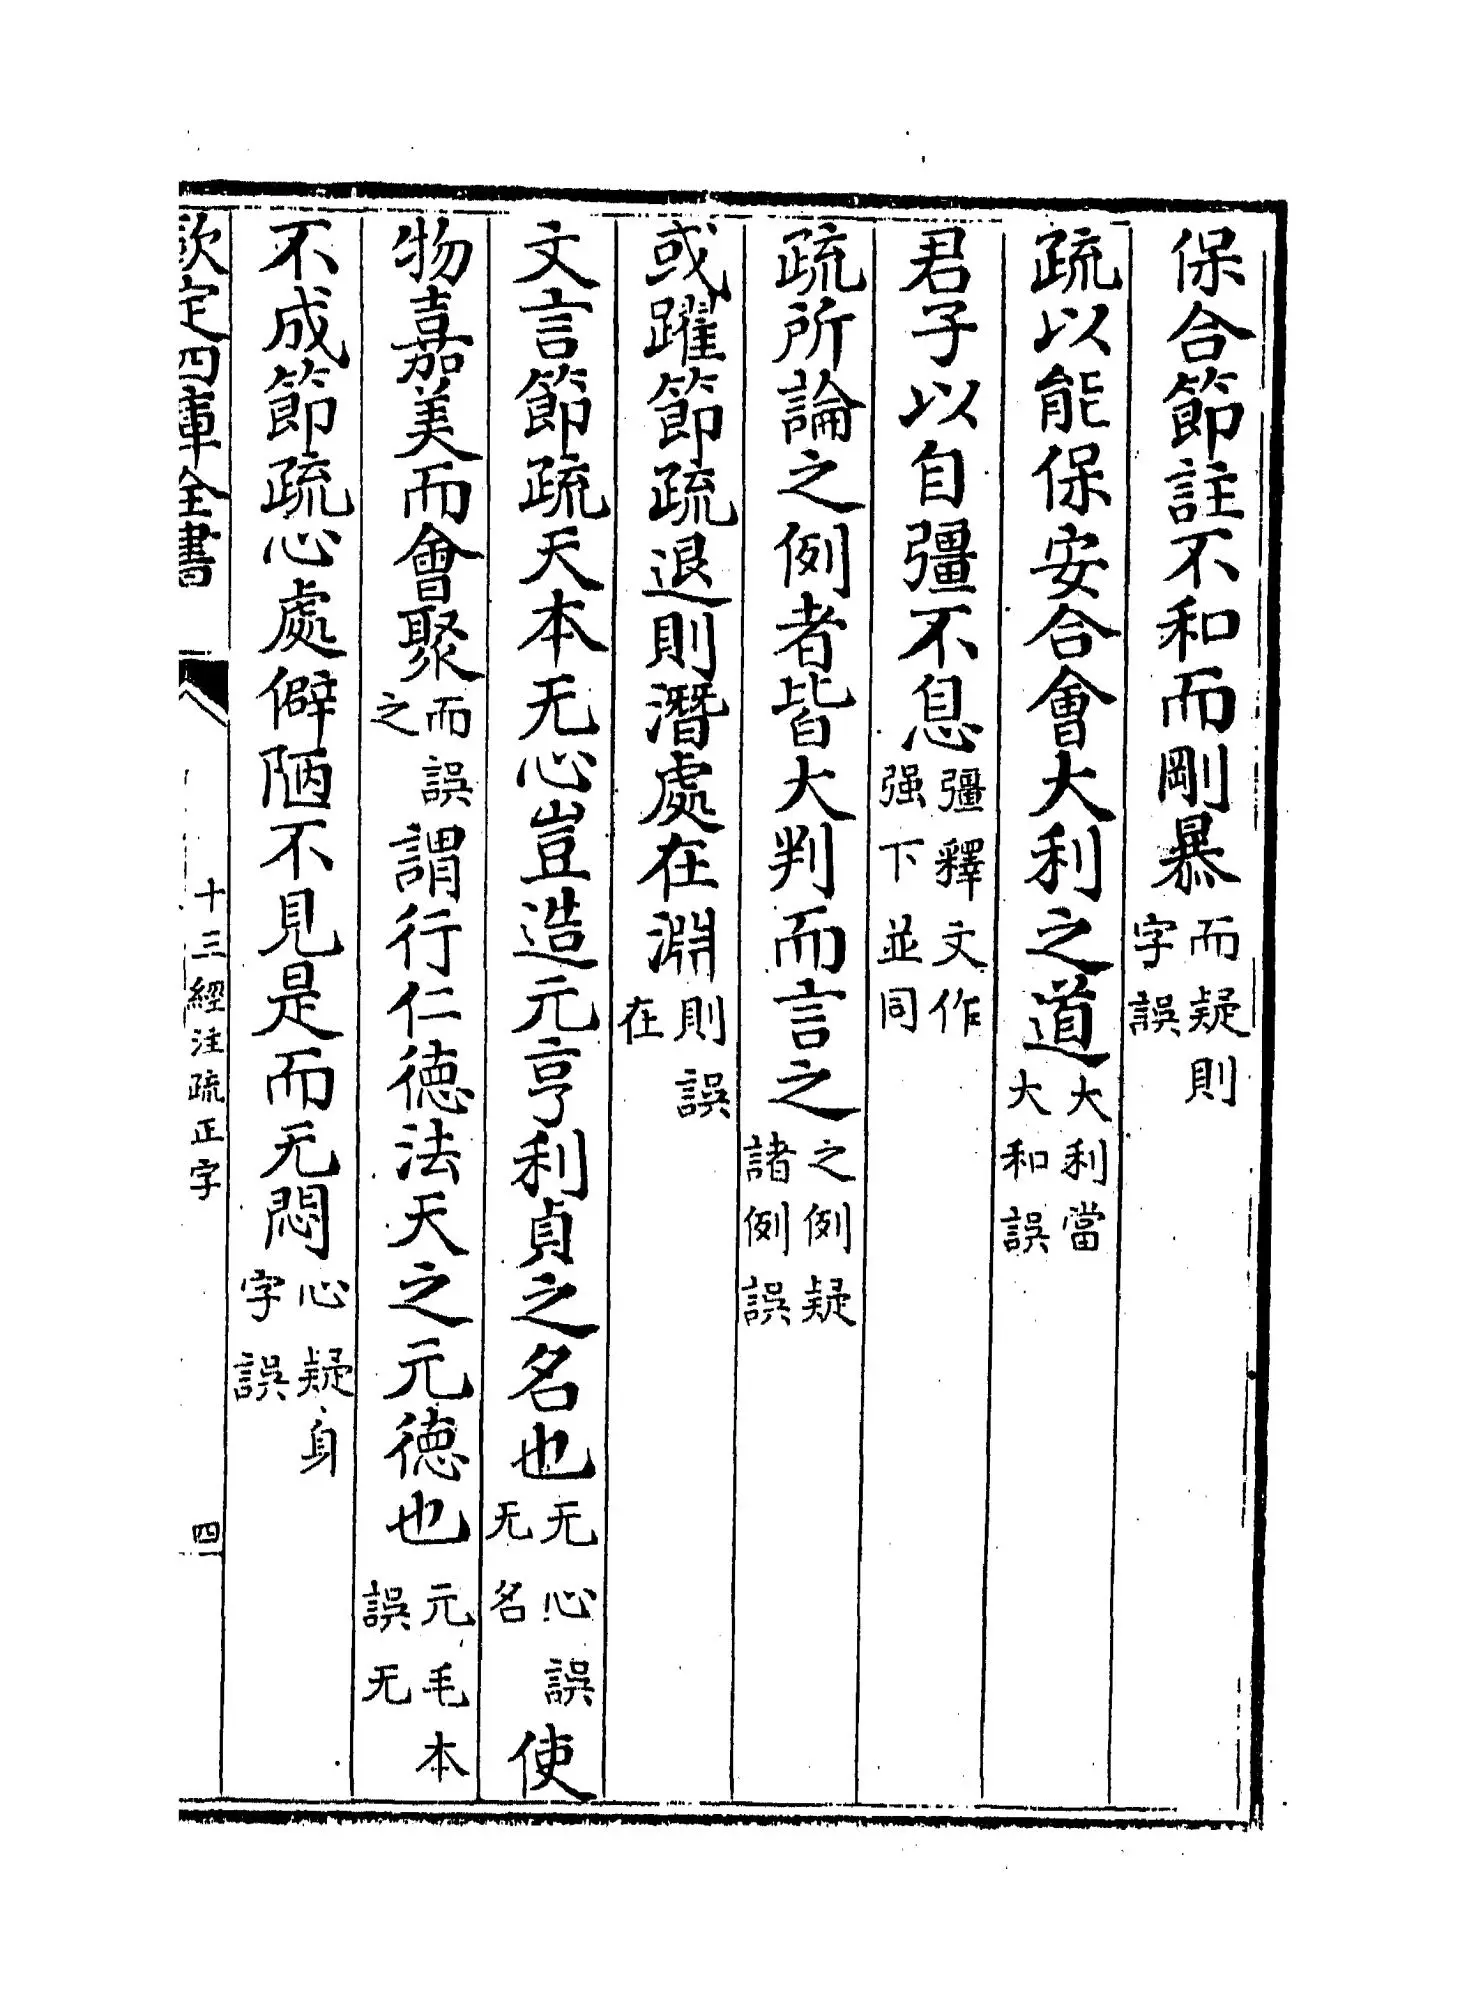 保合節註不和而剛暴而疑則字誤
疏以能保安合會大利之道大利當大和誤
君子以自彊不息彊釋文作强下並同
疏所論之例者皆大判而言之之例疑諸例誤
或躍節疏退則潛處在淵則誤在
文言節疏天本无心豈造元亨利貞之名也无心誤无名使
物嘉美而會聚而誤之謂行仁德法天之元德也元毛本誤无
不成節疏心處僻陋不見是而无悶心疑身字誤
欽定四庫全書
十三經注疏正字
四